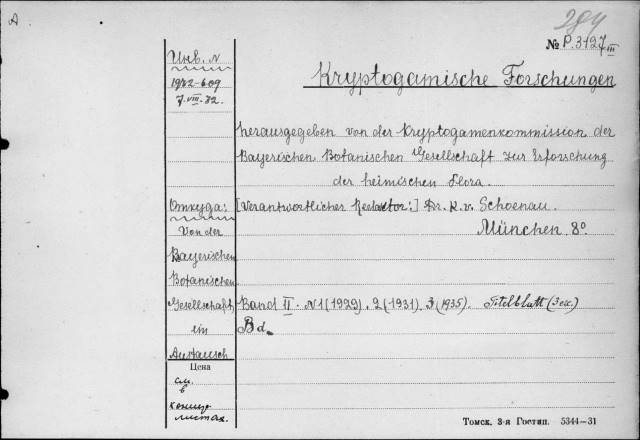 A
284
№ P.3127 III
Инв. N
1932-609
7.VIII.32.
Kryptogamische Forschungen
herausgegeben von der Kryptogamenkommission der
Bayerischen Botanischen Gesellschaft zur Erforschung
der heimischen Flora.
Откуда: [Verantwortlicher Redaktor:] Dr. K. v. Schoenau.
Von der München 8º.
Bayerischen
Botanischen
Gesellschaft, Band II. N1 (1929), 2 (1931), 3 (1935). Titelblatt (3 ex.)
ein Bd.
Austausch
Цена
см.
в
концу
листах.
Томск. 3-я Гостип. 5344—31